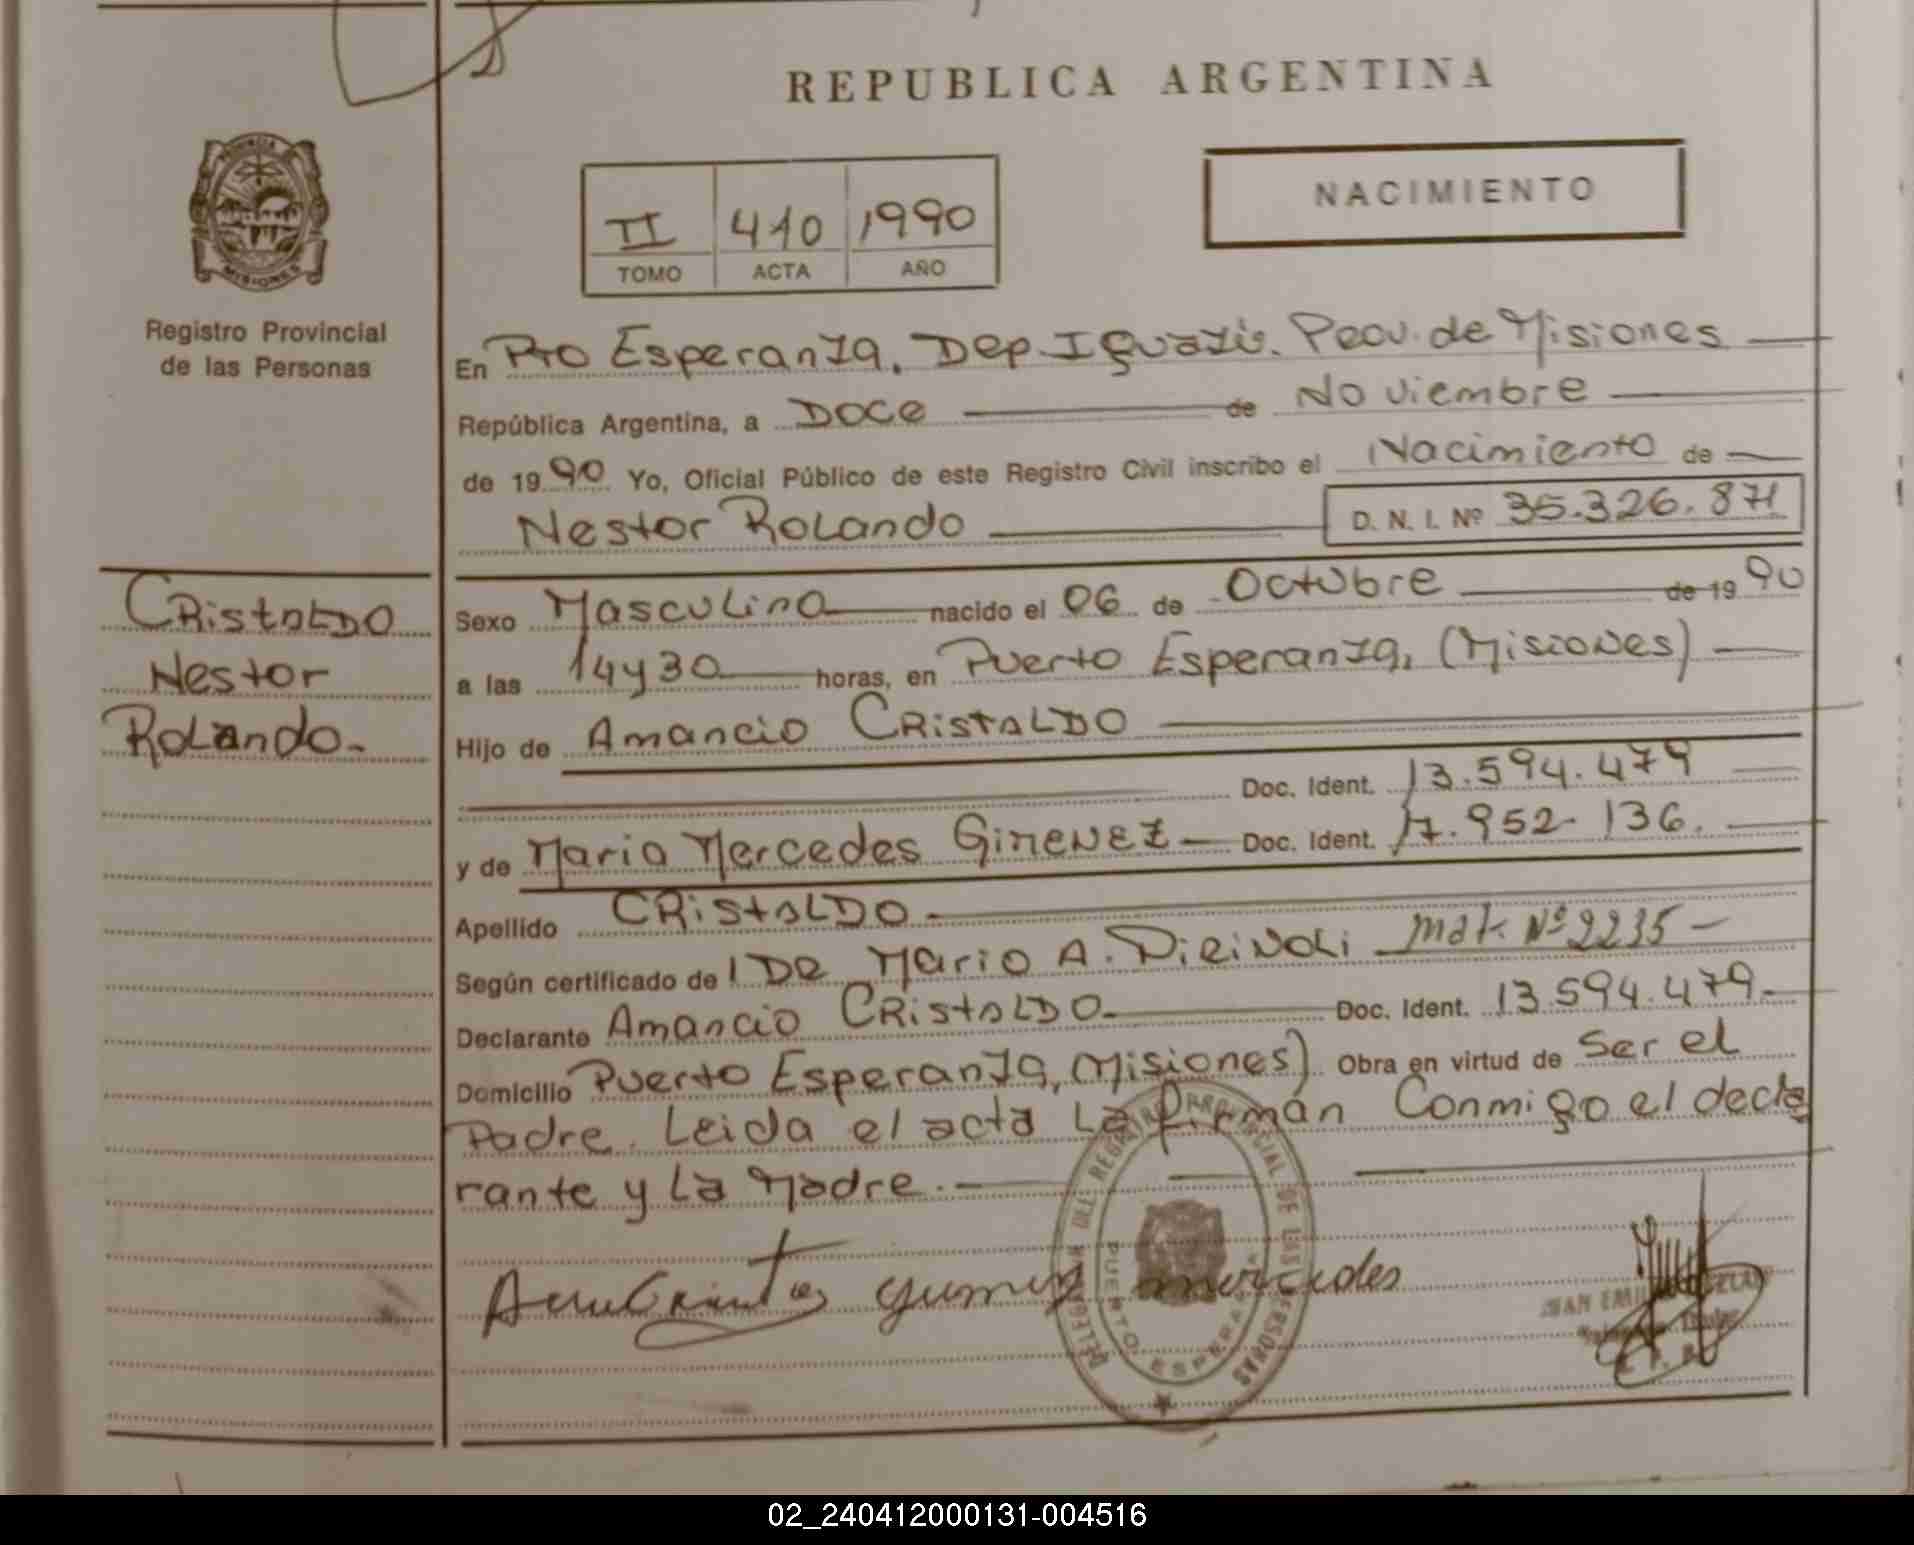 REPUBLICA ARGENTINA
PROVINCIA
MISIONES
Registro Provincial
de las Personas
II 410 1990
TOMO ACTA AÑO
NACIMIENTO
En Pto Esperanza, Dep. Iguazú. Pcov. de Misiones
República Argentina, a Doce de Noviembre
de 1990 Yo, Oficial Público de este Registro Civil inscribo el Nacimiento de
Nestor Rolando D. N. I. Nº 35.326.871
CRistaLDO
Nestor
Rolando.-
Sexo Masculino nacido el 06 de Octubre de 1990
a las 14 y 30 horas, en Puerto Esperanza, (Misiones)
Hijo de Amancio CRistaLDO
Doc. Ident. 13.594.479
y de Maria Mercedes GimeNez Doc. Ident. 17.952.136.
Apellido CRistaLDO.
Según certificado de DR Mario A. mat. Nº 2235
Declarante Amancio CRistaLDO. Doc. Ident. 13.594.479.
Domicilio Puerto Esperanza, (Misiones) Obra en virtud de Ser el
Padre. Leida el acta La Firmán Conmigo el decla
rante y La Madre.
mercedes
DEL REGISTRO PROVINCIAL DE LAS PERSONAS
PUERTO ESPERANZA
JUAN
02_240412000131-004516